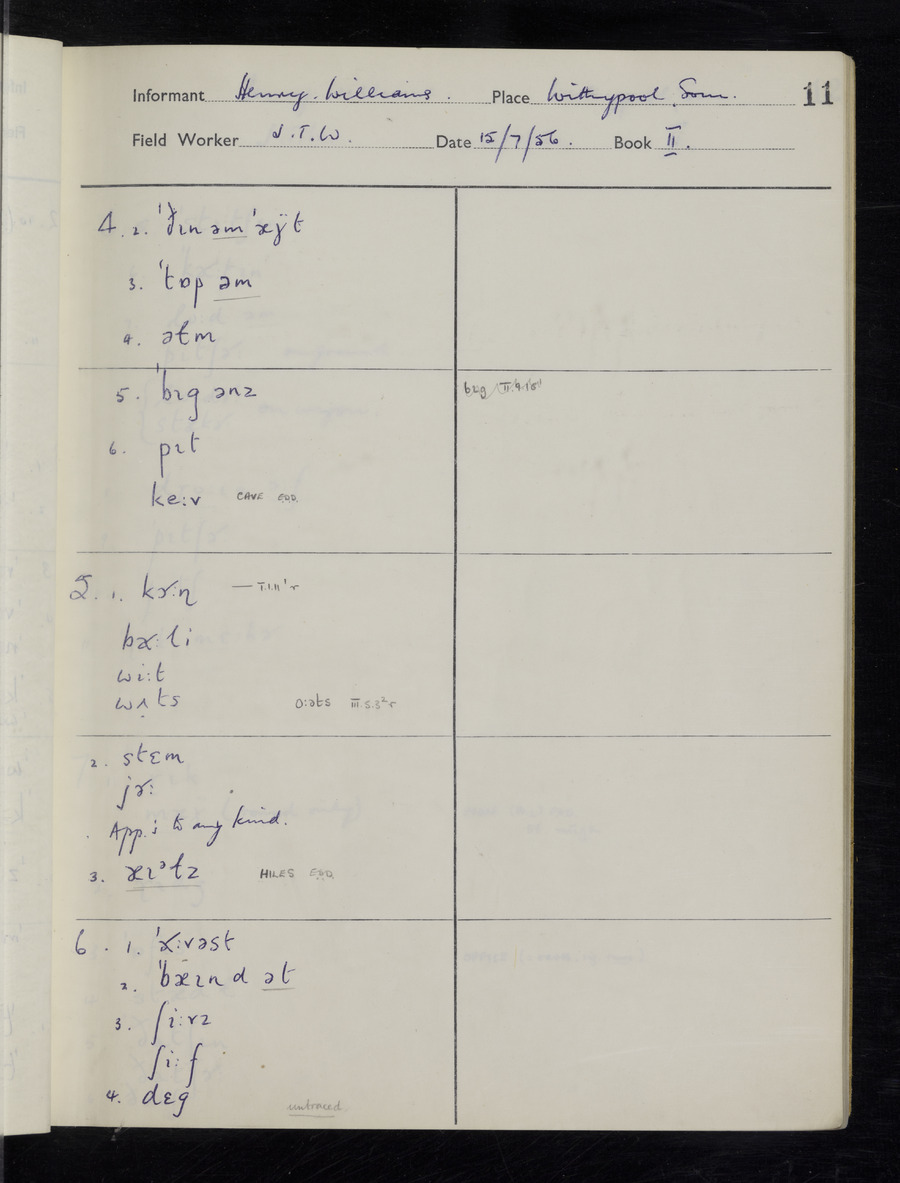 Informant Henry. Williams. Place Withypool, Som. 11
Field Worker J.T.W. Date 15/7/56. Book II.
4. 2. əm
3. ˈtɒp əm
4. ətm
5. ˈbɪg ənz bɪg II.9.15¹
6. pɪt
ke:v CAVE EDD.
5. 1. kɤ:ɳ
bɤ:li
wi:t
wʌts O:əts III.5.3² r
2. stɛm
jɤ:
App.s to any kind.
3. æɪᵊɫz HILES EDD
6. 1. ˈɤ:vəst
2. ˈbæɪnd ət
3. ʃi:vz
ʃi:f
4. dɛg
untraced